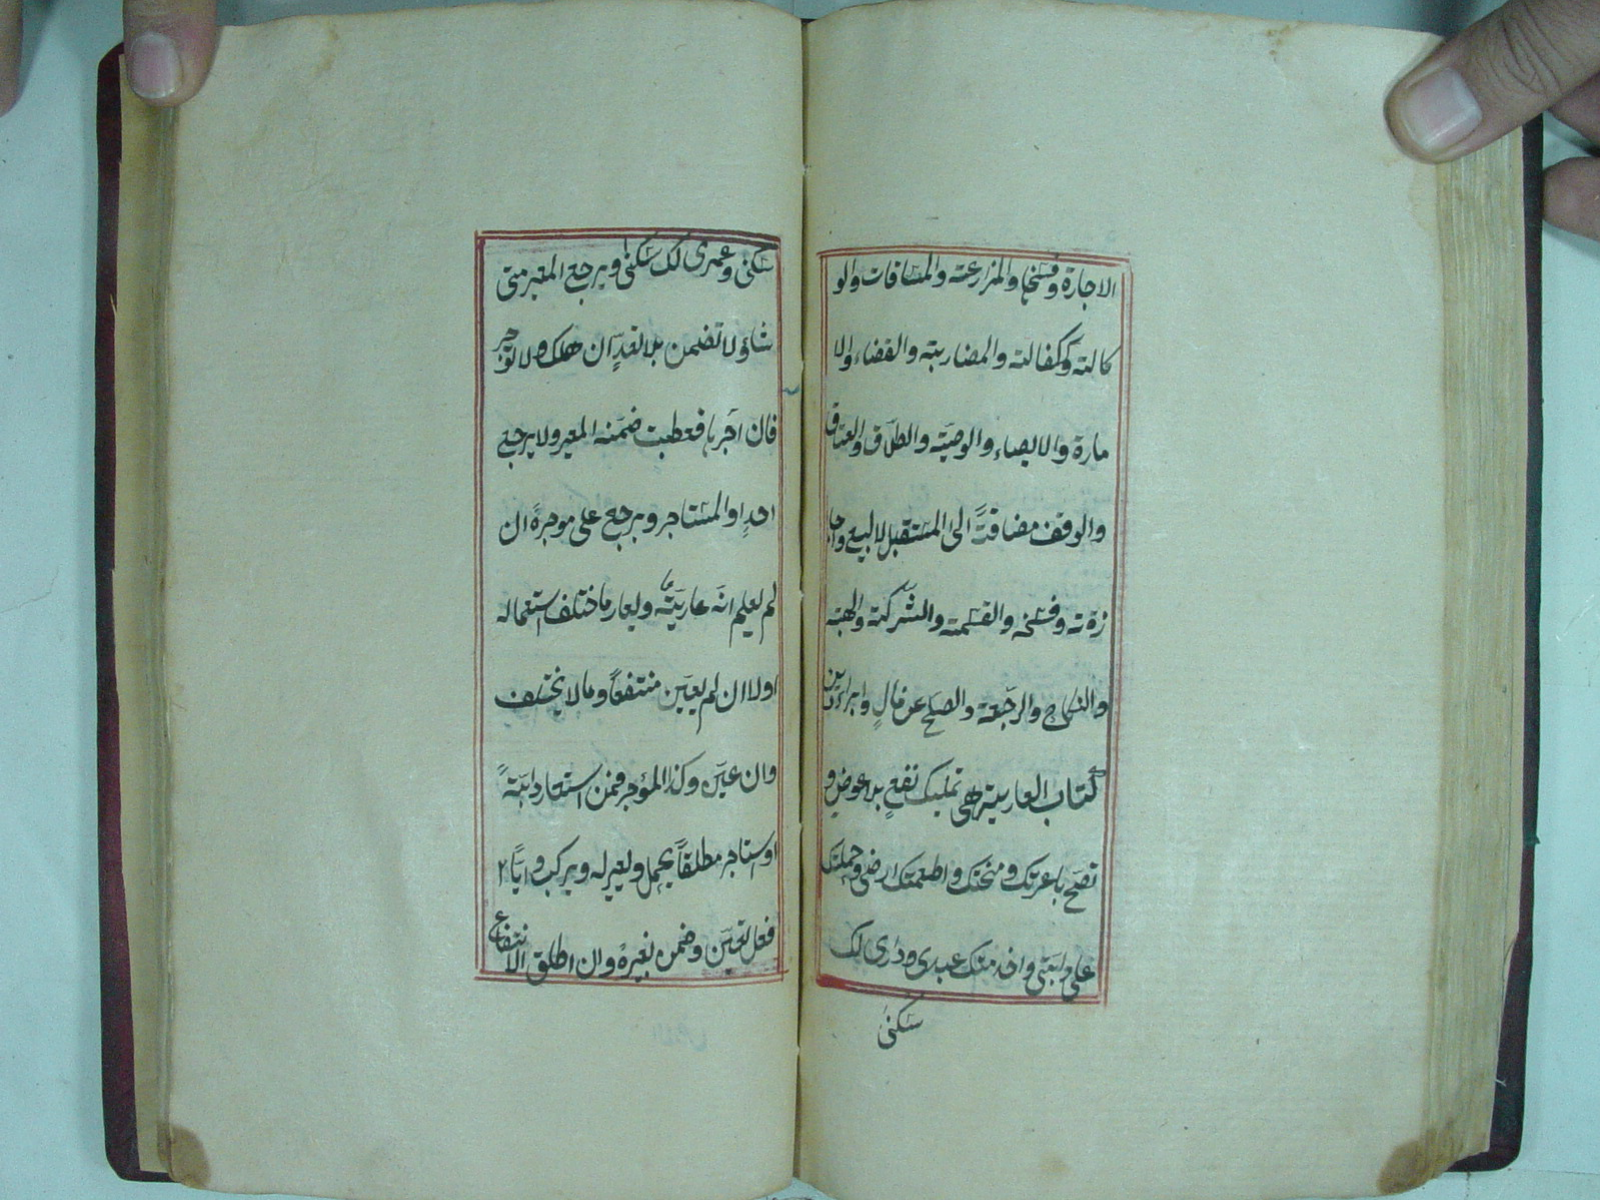 الاجارة وفسخها والمزارعة والمساقات والو
كالة وككفالة والمضاربة والقضاء والا
مارة والايصاء والوصيّة والطلاق والعتاق
والوقف مضافةً الى المستقبل لا البيع واجا
زته وفسخه والقسمة والشركة والهبة
والنكاح والرجعة والصلح عن مالٍ وابراء الدين
كتاب العارية هى تمليك نفعٍ بلا عوضٍ و
تصح باعرتك ومنحتك واطعمتك ارضى وحملتك
على دابتى واخدمتك عبدى ودارى لك
سكنى
سكنى وعمرى لك سكنى ويرجع المعير متى
شاؤ لا تضمن بلا تعدٍّ ان هلك ولا توجر
فان اجّرها فعطبت ضمّنه المعير ولا يرجع
احدٍ او المستاجر ويرجع على موجرةً ان
لم يعلم انّه عاريّة ويعار ما ختلف استعماله
اولا ان لم يعيّن منتفعاً وما لا يختلف
وان عيّن وكذا المؤجر فمن استعار دابّةً
او استاجر مطلقاً يحمل ويعير له ويركب وايّاً
فعل تعيّن وضمن بغيره وان اطلق الانتفاع